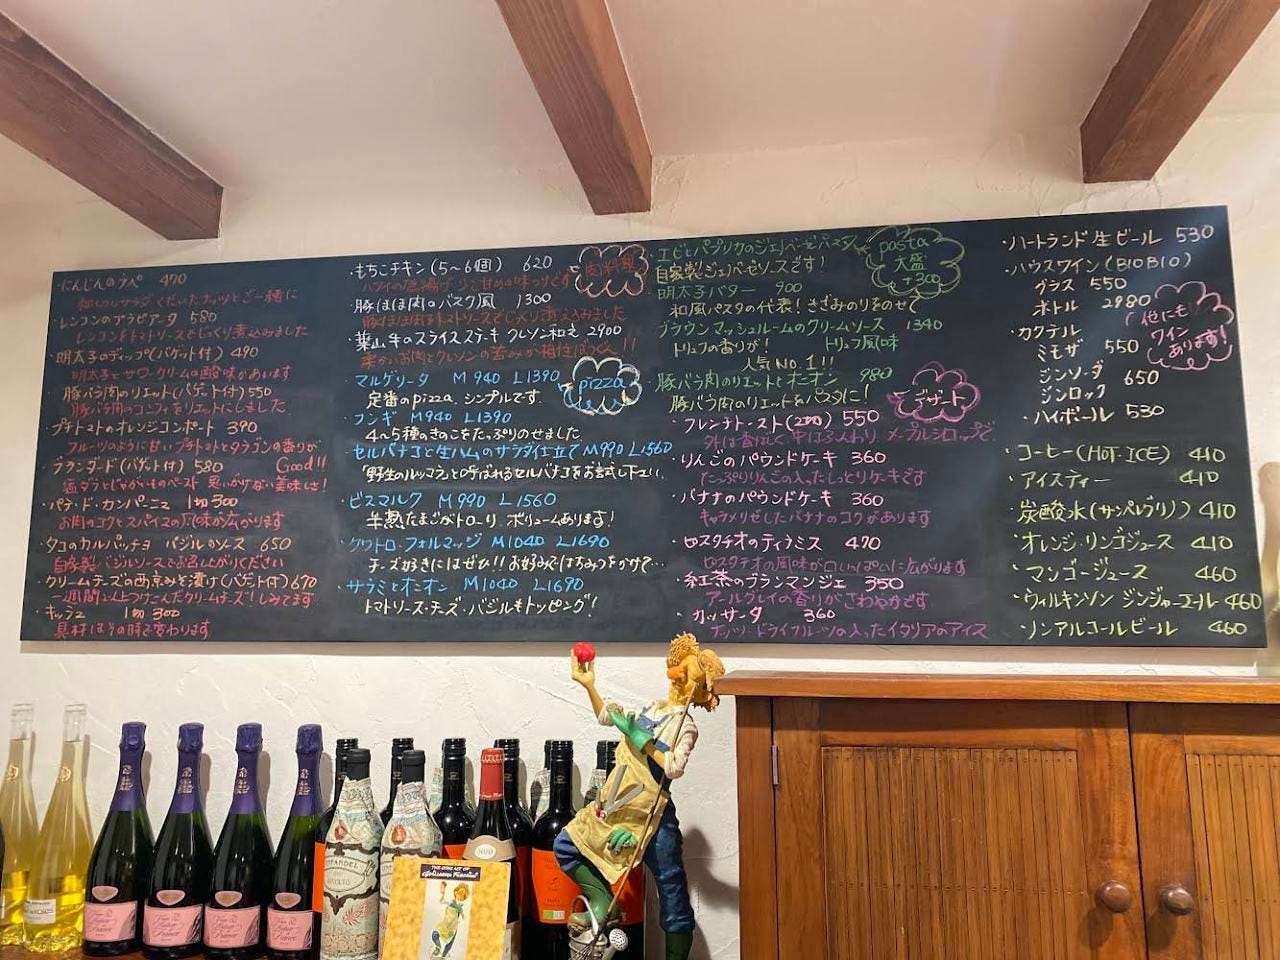 にんじんのラペ 470
細切りサラダ くだいたナッツとご一緒に
レンコンのアラビアータ 580
レンコンをトマトソースでじっくり煮込みました
明太子のディップ(バゲット付) 490
明太子とサワークリームの酸味が合います
豚バラ肉のリエット(バゲット付) 550
豚バラ肉のコンフィをリエットにしました
プチトマトのオレンジコンポート 390
フルーツのように甘いプチトマトとタラゴンの香りが
Good!!
ブランダード(バゲット付) 580
塩ダラとじゃがいものペースト 思いがけない美味しさ!
パテ・ド・カンパーニュ 1切300
お肉のコクとスパイスの風味が広がります
タコのカルパッチョ バジルのソース 650
自家製バジルソースでお召し上がりください
クリームチーズの西京みそ漬け(バゲット付) 670
一週間以上つけこんだクリームチーズ!しみてます
キッシュ 1切 300
具材はその時で変わります
もちこチキン(5~6個) 620
肉料理
ハワイの唐揚げ 少し甘めの味つけです
豚ほほ肉のバスク風 1300
豚ほほ肉をトマトソースでじっくり煮込みました
葉山牛のスライスステーキ クレソン和え 2900
柔かいお肉とクレソンの苦みが相性ばつぐん!!
マルゲリータ M 940 L1390
pizza
定番のpizza。シンプルです
フンギ M940 L1390
4~5種のきのこをたっぷりのせました
セルバチコと生ハムのサラダ仕立て M990 L1560
「野生のルッコラ」と呼ばれるセルバチコをお試し下さい。
ビスマルク M990 L1560
半熟たまごがトローリ ボリュームあります!
クワトロ・フォルマッジ M1040 L1690
チーズ好きにはぜひ!!お好みではちみつをかけて…
サラミとオニオン M1040 L1690
トマトソース・チーズ・バジルもトッピング!
エビとパプリカのジェノベーゼパスタ
pasta
大盛
+300
自家製ジェノベーゼソースです!
明太子バター 900
和風パスタの代表!きざみのりをのせて
ブラウンマッシュルームのクリームソース 1340
トリュフの香りが! トリュフ風味
人気No.1!!
豚バラ肉のリエットとオニオン 980
豚バラ肉のリエットをパスタに!
デザート
フレンチトースト(2切) 550
外は香ばしく中はふんわり メープルシロップで
りんごのパウンドケーキ 360
たっぷりりんごの入ったしっとりケーキです
バナナのパウンドケーキ 360
キャラメリゼしたバナナのコクがあります
ピスタチオのティラミス 470
ピスタチオの風味が口いっぱいに広がります
紅茶のブランマンジェ 350
アールグレイの香りがさわやかです
カッサータ 360
ナッツ・ドライフルーツの入ったイタリアのアイス
ハートランド生ビール 530
ハウスワイン(BIOBIO)
グラス 550
ボトル 2980
他にも
ワイン
あります!
カクテル
ミモザ 550
ジンソーダ 650
ジンロック
ハイボール 530
コーヒー(HOT・ICE) 410
アイスティー 410
炭酸水(サンペレグリノ) 410
オレンジ・リンゴジュース 410
マンゴージュース 460
ウィルキンソン ジンジャーエール 460
ノンアルコールビール 460
ZINFANDEL
2020
THE COMIC ART OF
Guillermo Forchino